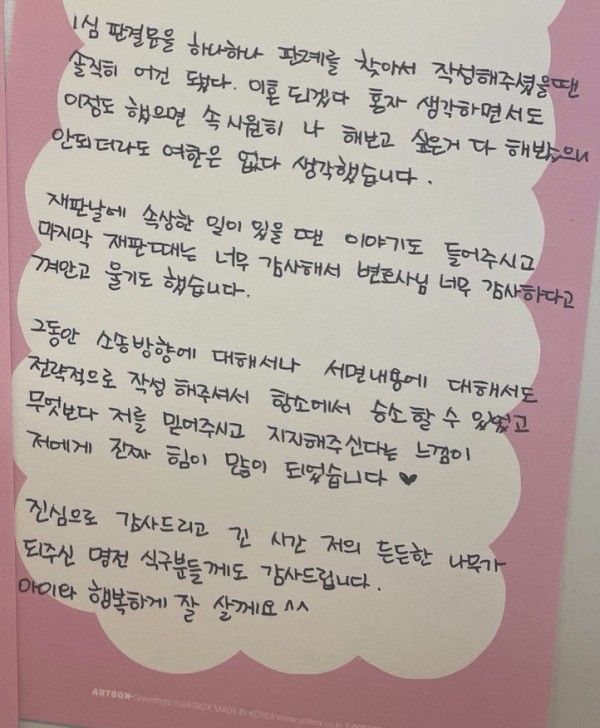 1심 판결문을 하나하나 판례를 찾아서 작성해주셨을땐
솔직히 어건 됐다. 이혼 되겠다 혼자 생각하면서도
이정도 했으면 속 시원히 나 해보고 싶은거 다 해봤으니
안되더라도 여한은 없다 생각했습니다.
재판날에 속상한 일이 있을 땐 이야기도 들어주시고
마지막 재판때는 너무 감사해서 변호사님 너무 감사하다고
껴안고 울기도 했습니다.
그동안 소송방향에 대해서나 서면내용에 대해서도
전략적으로 작성 해주셔서 항소에서 승소할 수 있었고
무엇보다 저를 믿어주시고 지지해주신다는 느낌이
저에게 진짜 힘이 많이 되었습니다 ♥
진심으로 감사드리고 긴 시간 저의 든든한 나무가
되주신 명전 식구분들께도 감사드립니다.
아이와 행복하게 잘 살게요^^
ARTBOX Greetings ©ARTBOX MADE IN KOREA www.artbox.co.kr